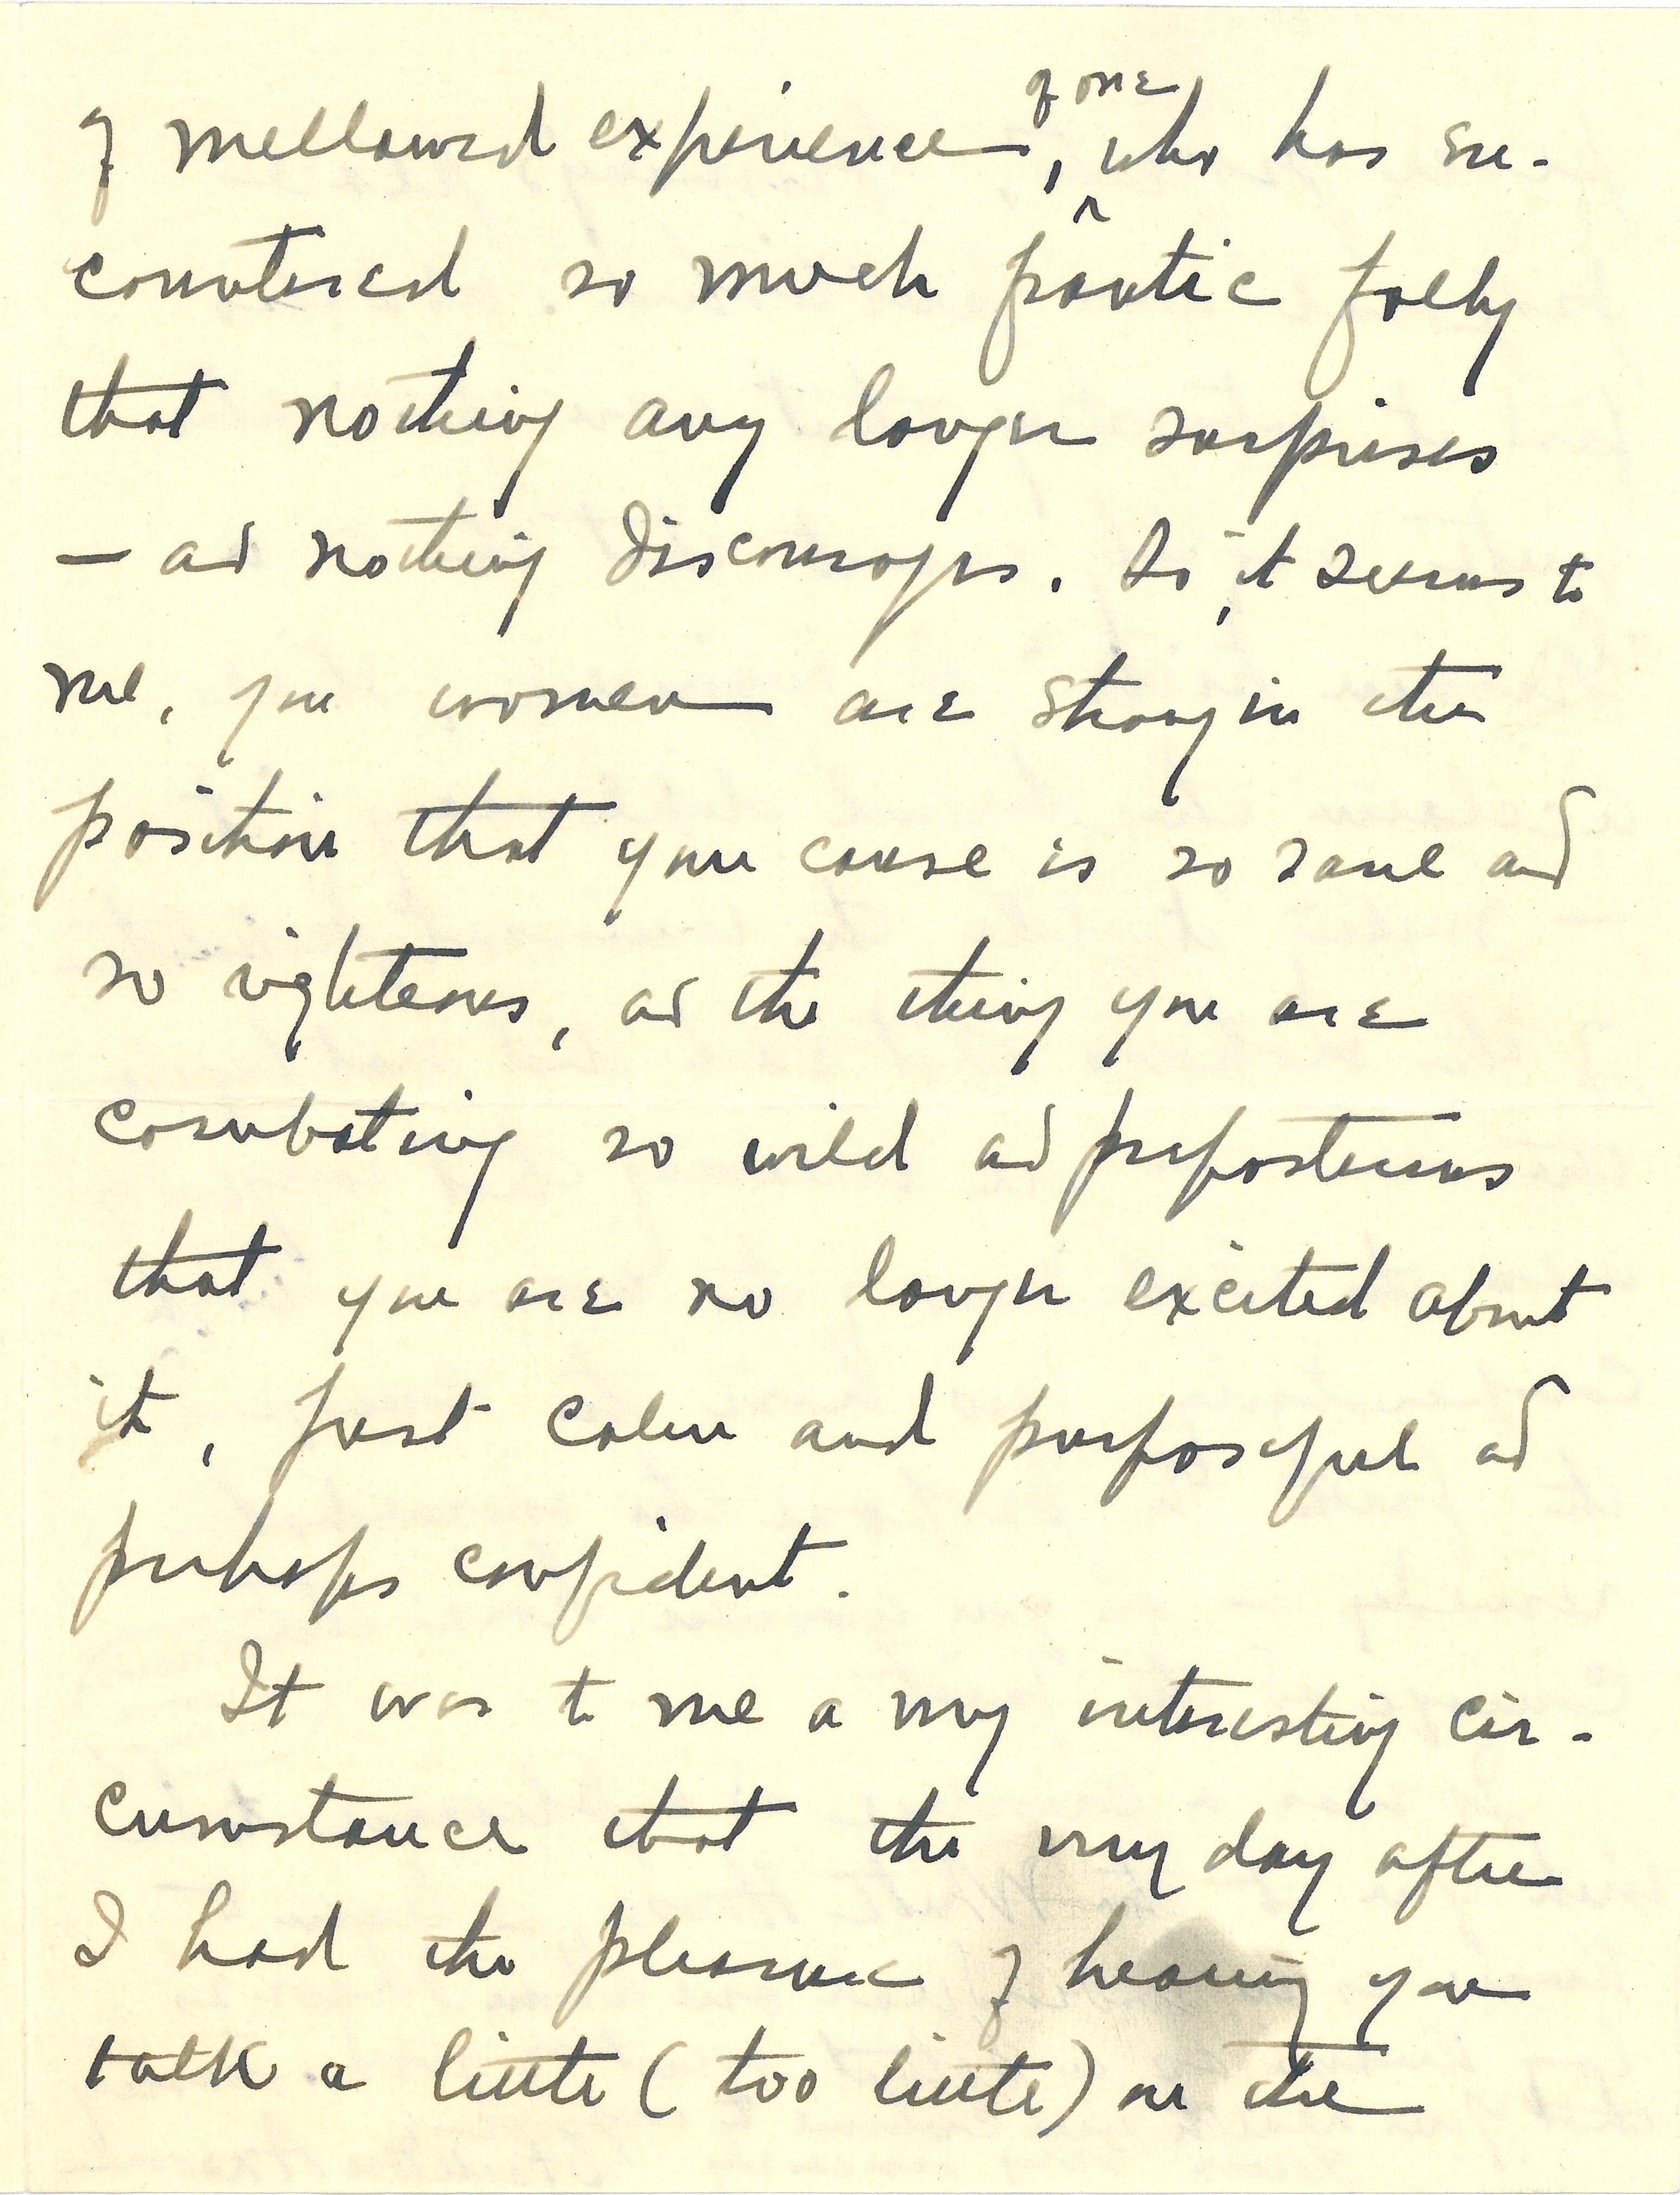 of mellowed experience, of one who has en-
countered so much frantic folly
that nothing any longer surprises
— and nothing discourages. So, it seems to
me, you women are strong in the
position that your cause is so sane and
so righteous, and the thing you are
combating so wild and preposterous
that you are no longer excited about
it, just calm and purposeful and
perhaps confident.
It was to me a very interesting cir-
cumstance that the very day after
I had the pleasure of hearing you
talk a little (too little) on the